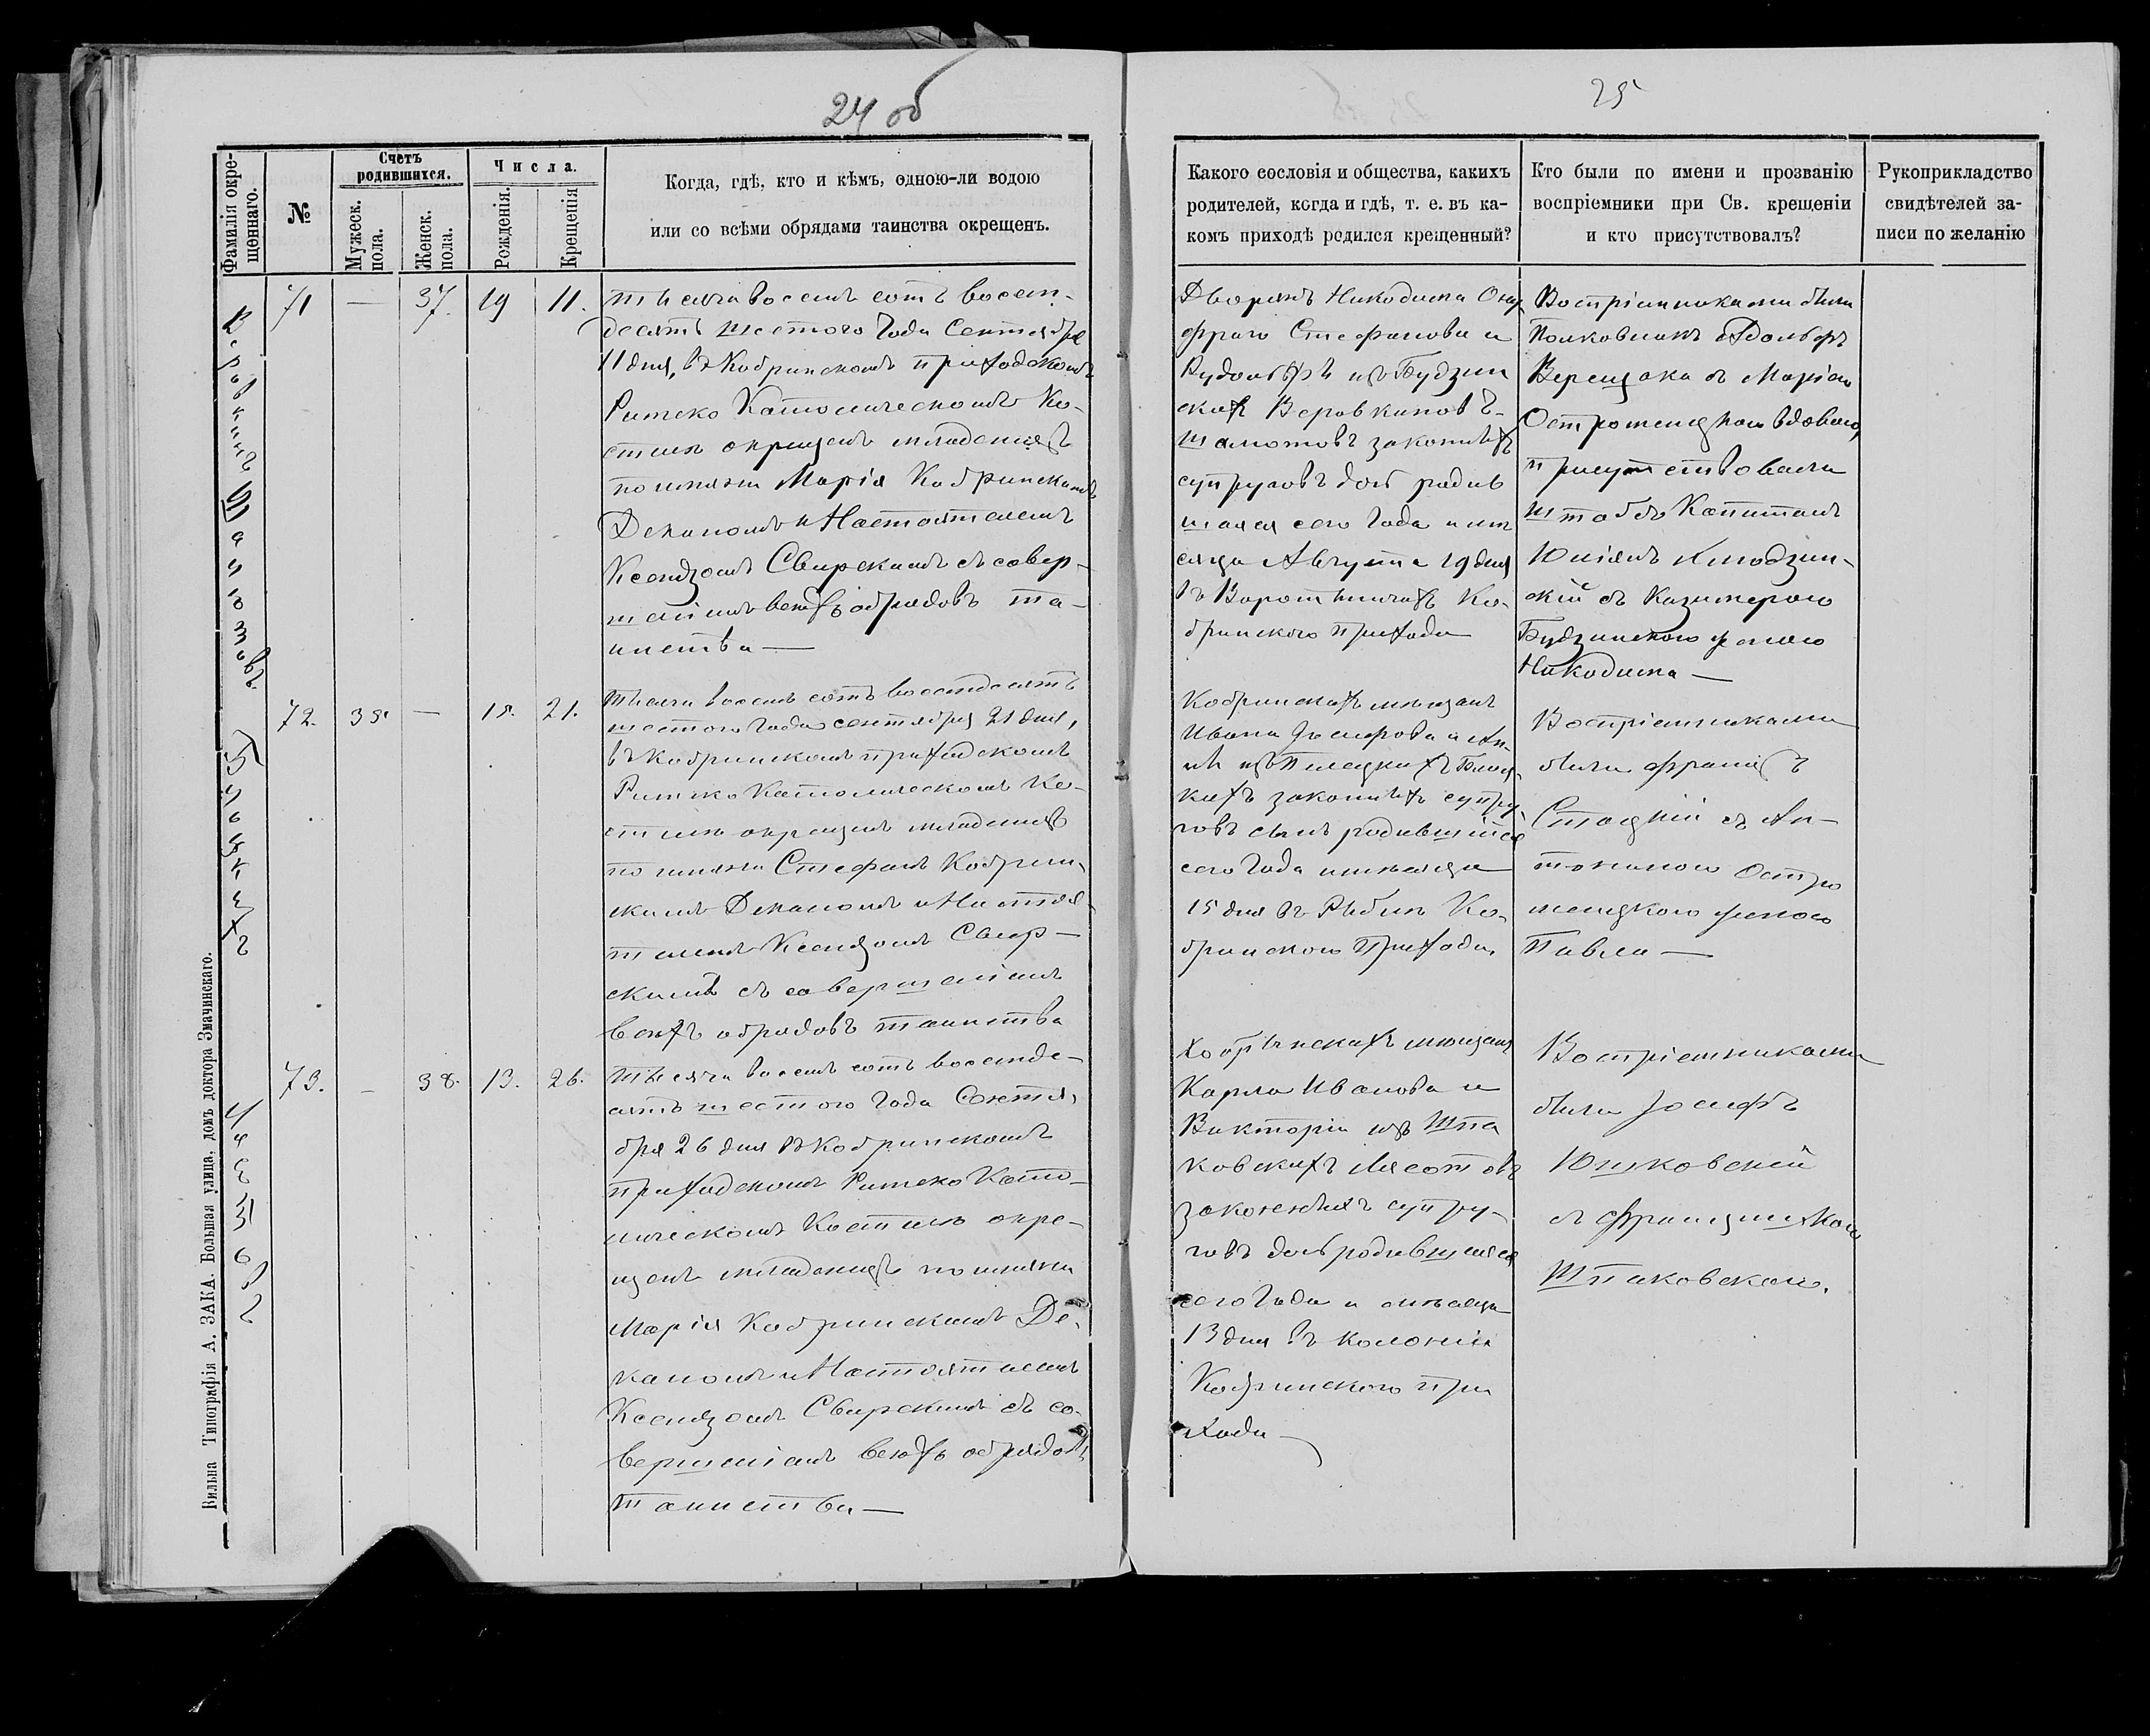 24 об
25
Фамилія окре-
щеннаго.
№
Счетъ
родившихся.
Мужеск.
пола.
Женск.
пола.
Числа.
Рожденія.
Крещенія
Когда, гдѣ, кто и кѣмъ, одною-ли водою
или со всѣми обрядами таинства окрещенъ.
Какого сословія и общества, какихъ
родителей, когда и гдѣ, т. е. въ ка-
комъ приходѣ родился крещенный?
Кто были по имени и прозванію
воспріемники при Св. крещеніи
и кто присутствовалъ?
Рукоприкладство
свидѣтелей за-
писи по желанію
71 — 37. 19 11.
тысяча восемь сотъ восем-
десятъ шестого Года Сентября
11 дня, въ Кобринскомъ приходскомъ
Римско Католическомъ Ко-
стелѣ окрещенъ младенецъ
по имени Марія Кобринскимъ
Деканомъ и Настоятелемъ
Ксендзомъ Свирскимъ съ совер-
шеніемъ всѣхъ обрядовъ та-
инства —
Дворянъ Никодима Ону
фрего Стефанова и
из Будзин
скихъ Веровкиновъ-
законныхъ
супруговъ дочь родив
шаяся сего Года и мѣ
сяца Августа 19 дня
въ Ко-
бринского прихода
Воспріемниками были
Полковникъ Адольфъ
Верещака съ Маріею
Остроменцкою вдовою,
присутствовали
штабсъ Капитанъ
съ Казимерою
Будзинскою женою
Никодима —
72. 38. — 15. 21.
тысяча восемь сотъ восемдесятъ
шестого Года сентября 21 дня,
въ Кобринскомъ приходскомъ
Римско Католическомъ Ко-
стелѣ окрещенъ младенецъ
по имени Стефанъ Кобрин-
скимъ Деканомъ и Настоя-
телемъ Ксендзомъ Свир-
скимъ съ совершеніемъ
всѣхъ обрядовъ таинства
Кобринскихъ мѣщанъ
Ивана и Ан-
ны изъ
кихъ законныхъ супру
говъ сынъ родившійся
сего Года и мѣсяца
15 дня въ Ко-
бринского Прихода.
Воспріемниками
были Францъ
съ Ан-
тониною Остро
менцкою женою
Павла —
73. — 38. 13. 26.
тысяча восемь сотъ восемде-
сятъ шестого Года Сентя-
бря 26 дня въ Кобринскомъ
приходскомъ Римско Като-
лическомъ Костелѣ окре-
щенъ младенецъ по имени
Марія Кобринскимъ Де-
каномъ и Настоятелемъ
Ксендзомъ Свирскимъ съ со-
вершеніемъ всѣхъ обрядовъ
таинства —
Кобринскихъ мѣщанъ
Карла Иванова и
Викторіи изъ Шпа
ковскихъ Лясотовъ
законныхъ супру-
говъ дочь родившаяся
сего Года и мѣсяца
13 дня въ колоніи
Кобринского при
хода —
Воспріемниками
были Іосифъ
Юшковскій
съ Францишкою
Шпаковскою.
Вильна Типографія А. ЗАКА. Большая улица, домъ доктора Змачинскаго.